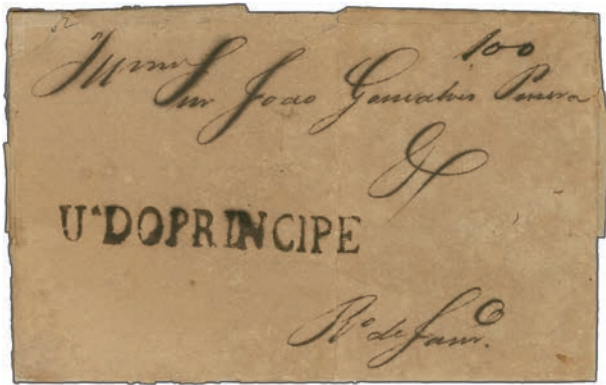 52
100
Illmo Snr Joao Gonsalves Pereira
Ua DO PRINCIPE
Ro de Janro